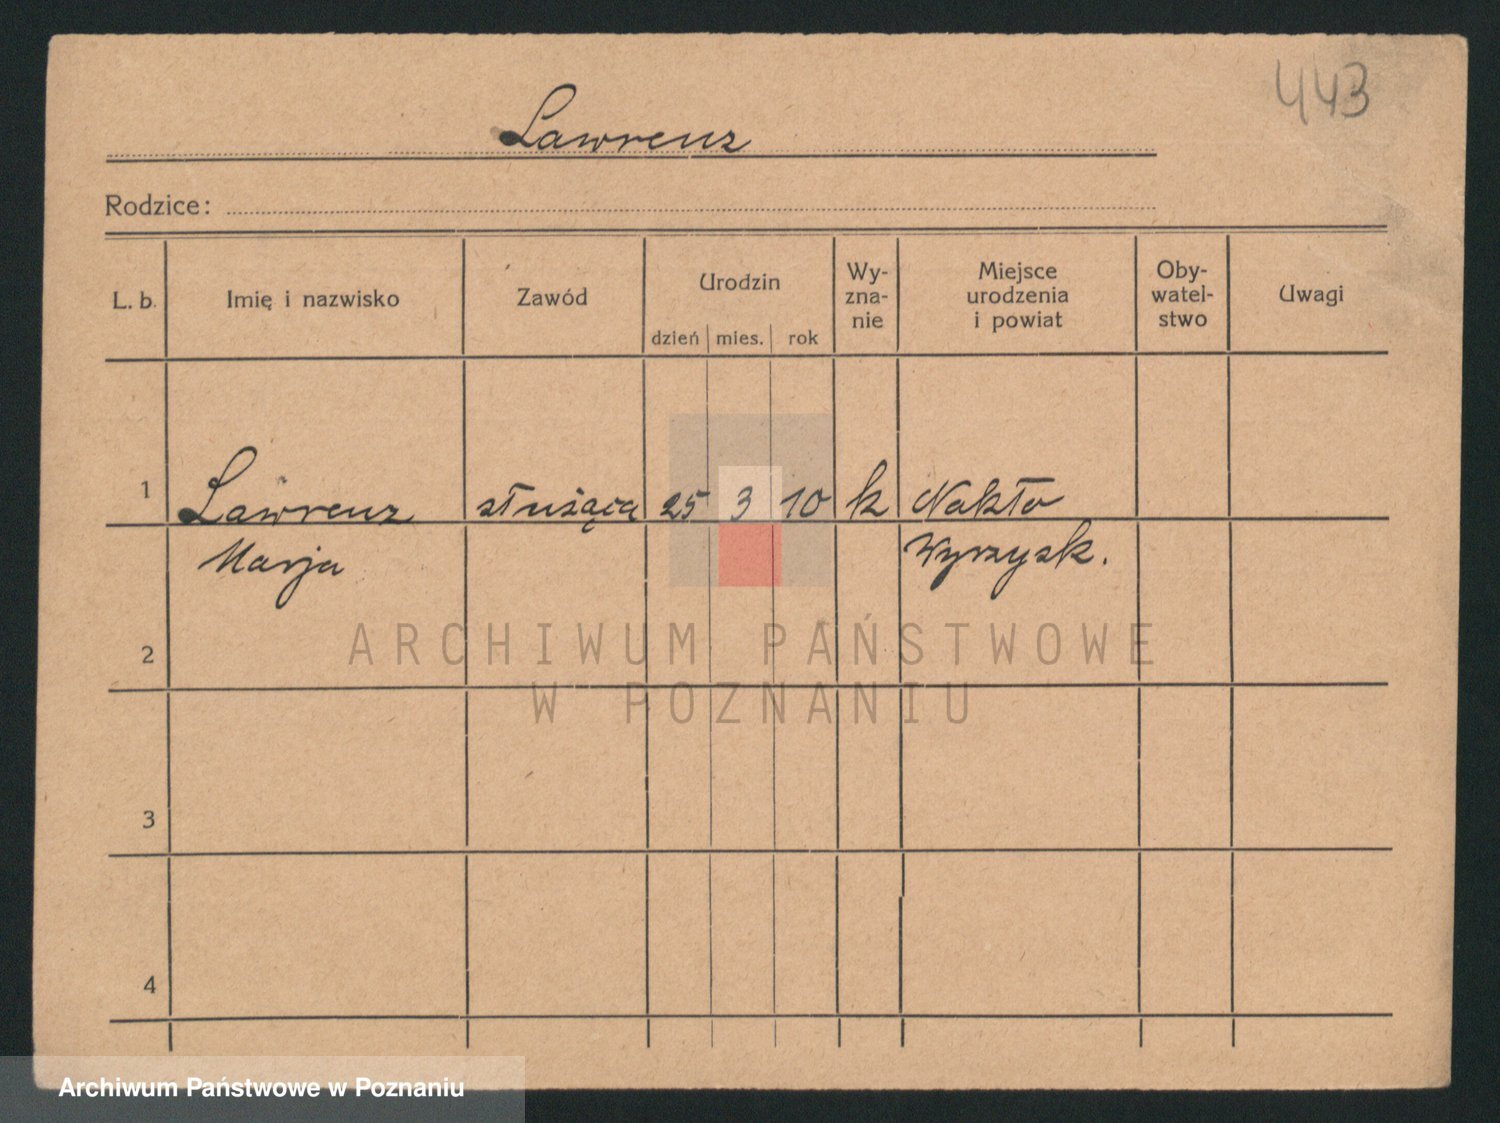 443
Lawrenz
Rodzice:
L. b. Imię i nazwisko Zawód Urodzin dzień mies. rok Wy-zna-nie Miejsce urodzenia i powiat Oby-watel-stwo Uwagi
1 Lawrenz służąca 25 3 10 k Nakło
Marja Wyrzysk.
2
3
4
ARCHIWUM PAŃSTWOWE
W POZNANIU
Archiwum Państwowe w Poznaniu